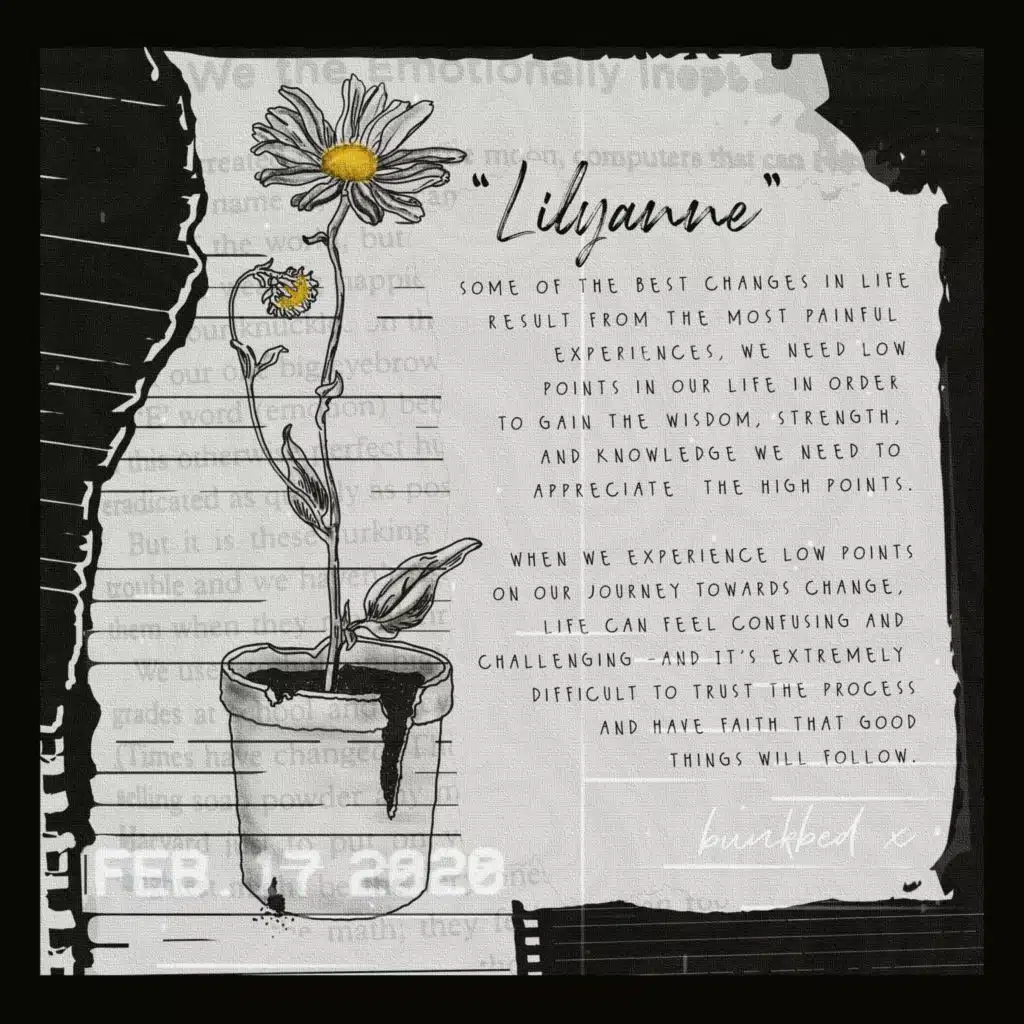 We the Emotionally Inept
moon, computers that can
name
the world, but
happi
our knuckles on th
our one big eyebrow
'E' word (emotion) bec
this otherwise perfect hu
eradicated as quickly as pos
But it is these lurking
trouble and we haven't
them when they
We use
grades at school and
(Times have changed. Th
selling soap powder
Harvard just to put
the math; they
"Lilyanne"
SOME OF THE BEST CHANGES IN LIFE
RESULT FROM THE MOST PAINFUL
EXPERIENCES, WE NEED LOW
POINTS IN OUR LIFE IN ORDER
TO GAIN THE WISDOM, STRENGTH,
AND KNOWLEDGE WE NEED TO
APPRECIATE THE HIGH POINTS.
WHEN WE EXPERIENCE LOW POINTS
ON OUR JOURNEY TOWARDS CHANGE,
LIFE CAN FEEL CONFUSING AND
CHALLENGING -AND IT'S EXTREMELY
DIFFICULT TO TRUST THE PROCESS
AND HAVE FAITH THAT GOOD
THINGS WILL FOLLOW.
bunkbed x
FEB 17 2020